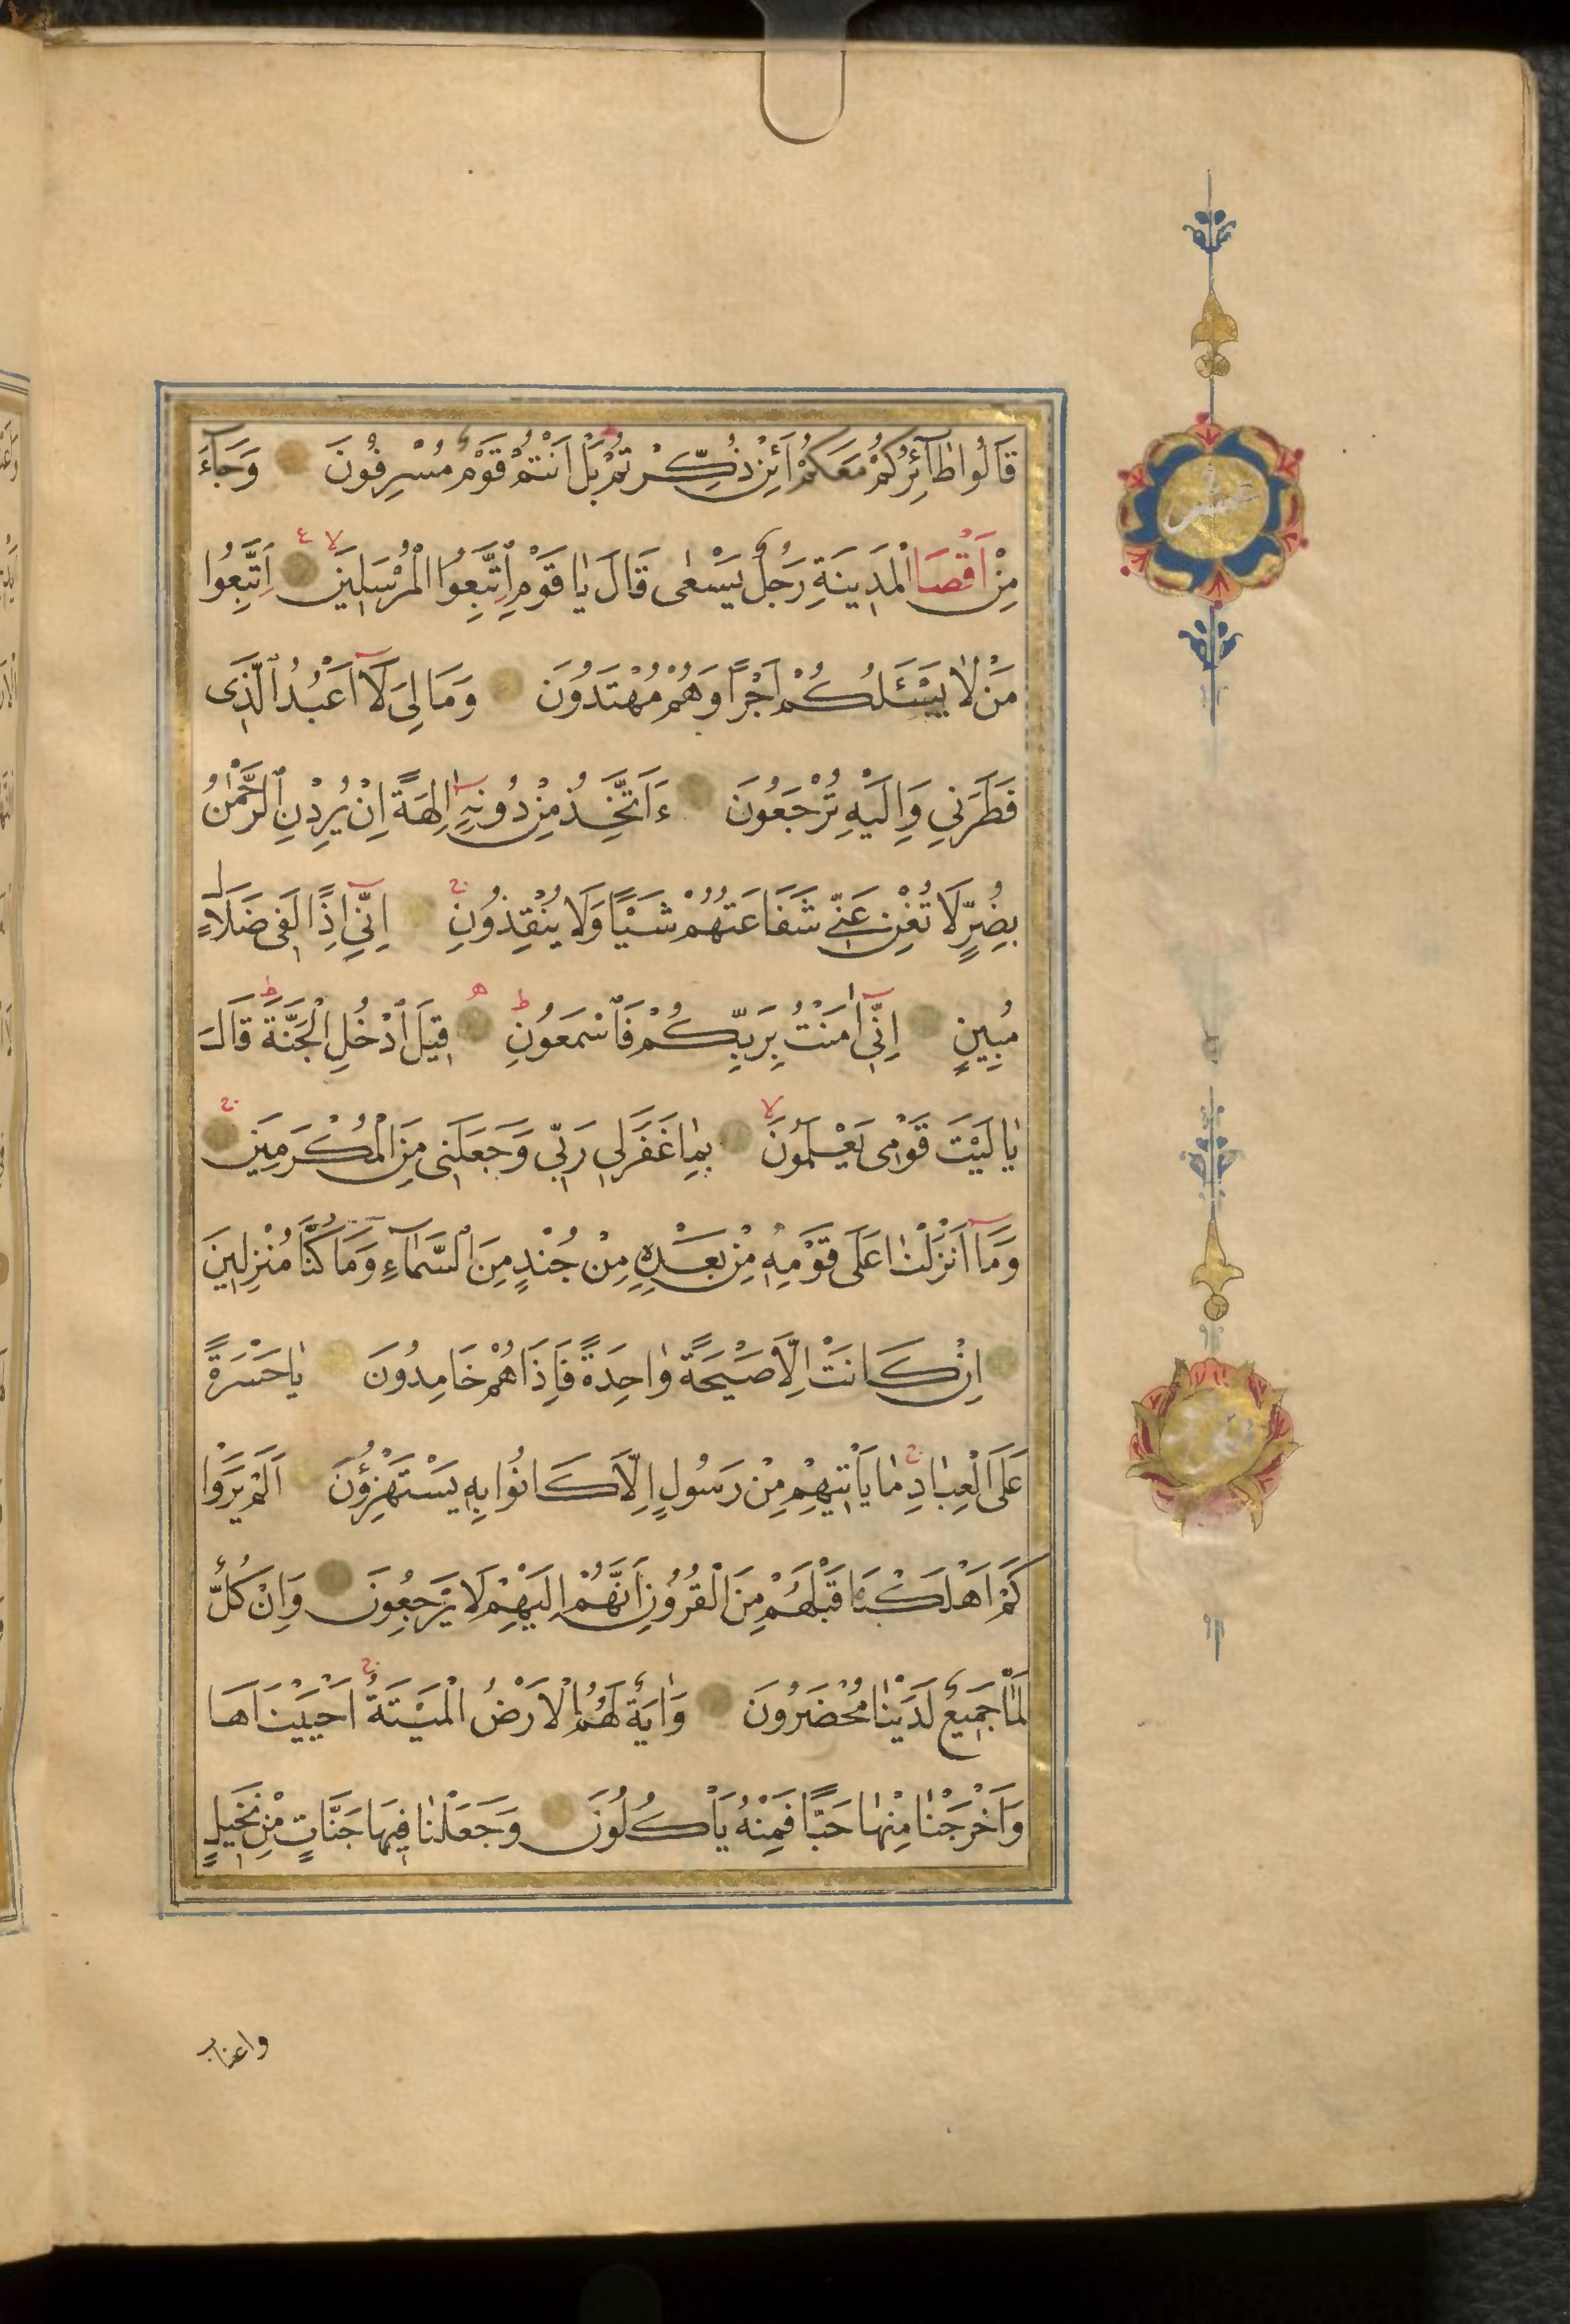 قَالُوا طَآئِرُكُمْ مَعَكُمْ اَئِنْ ذُكِّرْتُمْ بَلْ اَنْتُمْ قَوْمٌ مُسْرِفُونَ وَجَآءَ
عشر
مِنْ اَقْصَا الْمَدِينَةِ رَجُلٌ يَسْعٰى قَالَ يَا قَوْمِ اتَّبِعُوا الْمُرْسَلِينَ اِتَّبِعُوا
مَنْ لَا يَسْـَٔلُكُمْ اَجْرًا وَهُمْ مُهْتَدُونَ وَمَا لِيَ لَآ اَعْبُدُ الَّذِى
فَطَرَنِي وَاِلَيْهِ تُرْجَعُونَ ءَاَتَّخِذُ مِنْ دُونِهِ اٰلِهَةً اِنْ يُرِدْنِ الرَّحْمٰنُ
بِضُرٍّ لَا تُغْنِ عَنِّي شَفَاعَتُهُمْ شَيْئًا وَلَا يُنْقِذُونِ اِنِّي اِذًا لَفِى ضَلَالٍ
مُبِينٍ اِنِّي اٰمَنْتُ بِرَبِّكُمْ فَاسْمَعُونِ قِيلَ ادْخُلِ الْجَنَّةَ قَالَ
يَا لَيْتَ قَوْمِى يَعْلَمُونَ بِمَا غَفَرَ لِي رَبِّي وَجَعَلَنِى مِنَ الْمُكْرَمِينَ
وَمَآ اَنْزَلْنَا عَلٰى قَوْمِهِ مِنْ بَعْدِهِ مِنْ جُنْدٍ مِنَ السَّمَآءِ وَمَا كُنَّا مُنْزِلِينَ
اِنْ كَانَتْ اِلَّا صَيْحَةً وَاحِدَةً فَاِذَا هُمْ خَامِدُونَ يَا حَسْرَةً
عَلَى الْعِبَادِ مَا يَأْتِيهِمْ مِنْ رَسُولٍ اِلَّا كَانُوا بِهِ يَسْتَهْزِؤُنَ اَلَمْ يَرَوْا
كَمْ اَهْلَكْنَا قَبْلَهُمْ مِنَ الْقُرُونِ اَنَّهُمْ اِلَيْهِمْ لَا يَرْجِعُونَ وَاِنْ كُلٌّ
لَمَّا جَمِيعٌ لَدَيْنَا مُحْضَرُونَ وَاٰيَةٌ لَهُمُ الْاَرْضُ الْمَيْتَةُ اَحْيَيْنَاهَا
وَاَخْرَجْنَا مِنْهَا حَبًّا فَمِنْهُ يَأْكُلُونَ وَجَعَلْنَا فِيهَا جَنَّاتٍ مِنْ نَخِيلٍ
واعناب